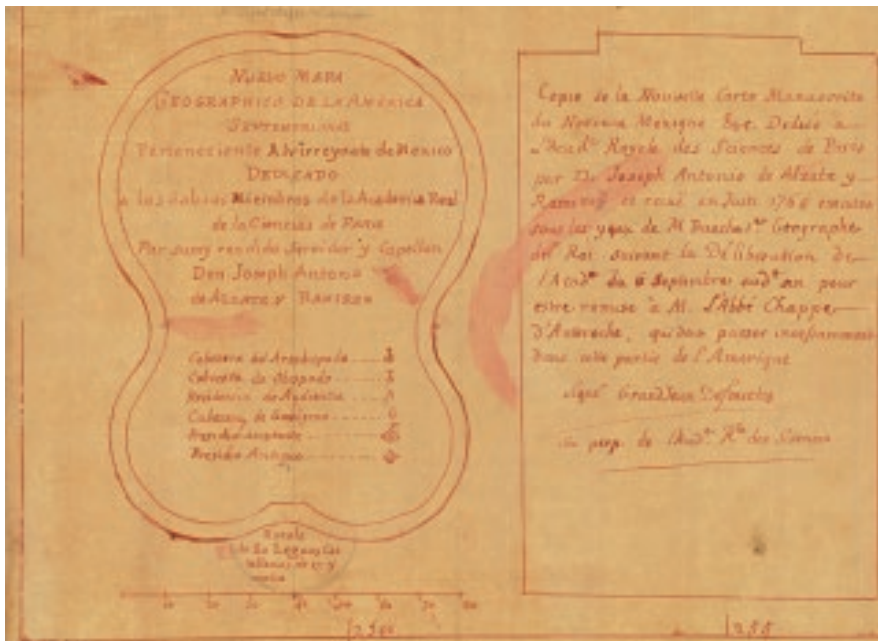 NUEVO MAPA
GEOGRAPHICO DE LA AMERICA
SEPTENTRIONAL
Perteneciente Al Virreynato de Mexico
DEDICADO
a los Sabios Miembros de la Academia Real
de la Ciencias de PARIS
Por su muy rendido Servidor y Capellan
Don Joseph Antonio
de ALZATE Y RAMIREZ
Cabecera de Arzobispado
Cabecera de Obispado
Residencia de Audiencia
Cabecera de Gobierno
Presidio
Presidio Antiguo
Escala
de Leguas Cas
tellanas de 17 y
media
10 20 30 40 50 60 70 80
Copie de la Nouvelle Carte Manuscrite
du Nouveau Mexique &c. Dediée a
L'Acad. Royale des Sciences de Paris
par Dn Joseph Antonio de Alzate y
Ramirez et reçue en Juin 176 executée
sous les yeux de M. Buache 1er Geographe
du Roi suivant la Déliberation de
l'Acad. du 6 Septembre sud. an pour
estre remise à M. l'Abbé Chappe
d'Auteroche, qui doit passer incessamment
dans cette partie de l'Amerique
Signé Grandjean Defouchy
Sec. perp. de l'Acad. Rle des Sciences
255